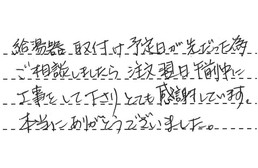 給湯器 取付け予定日が先だった為
ご相談しましたら 注文翌日午前中に
工事をして下さり とても感謝しています。
本当にありがとうございました。